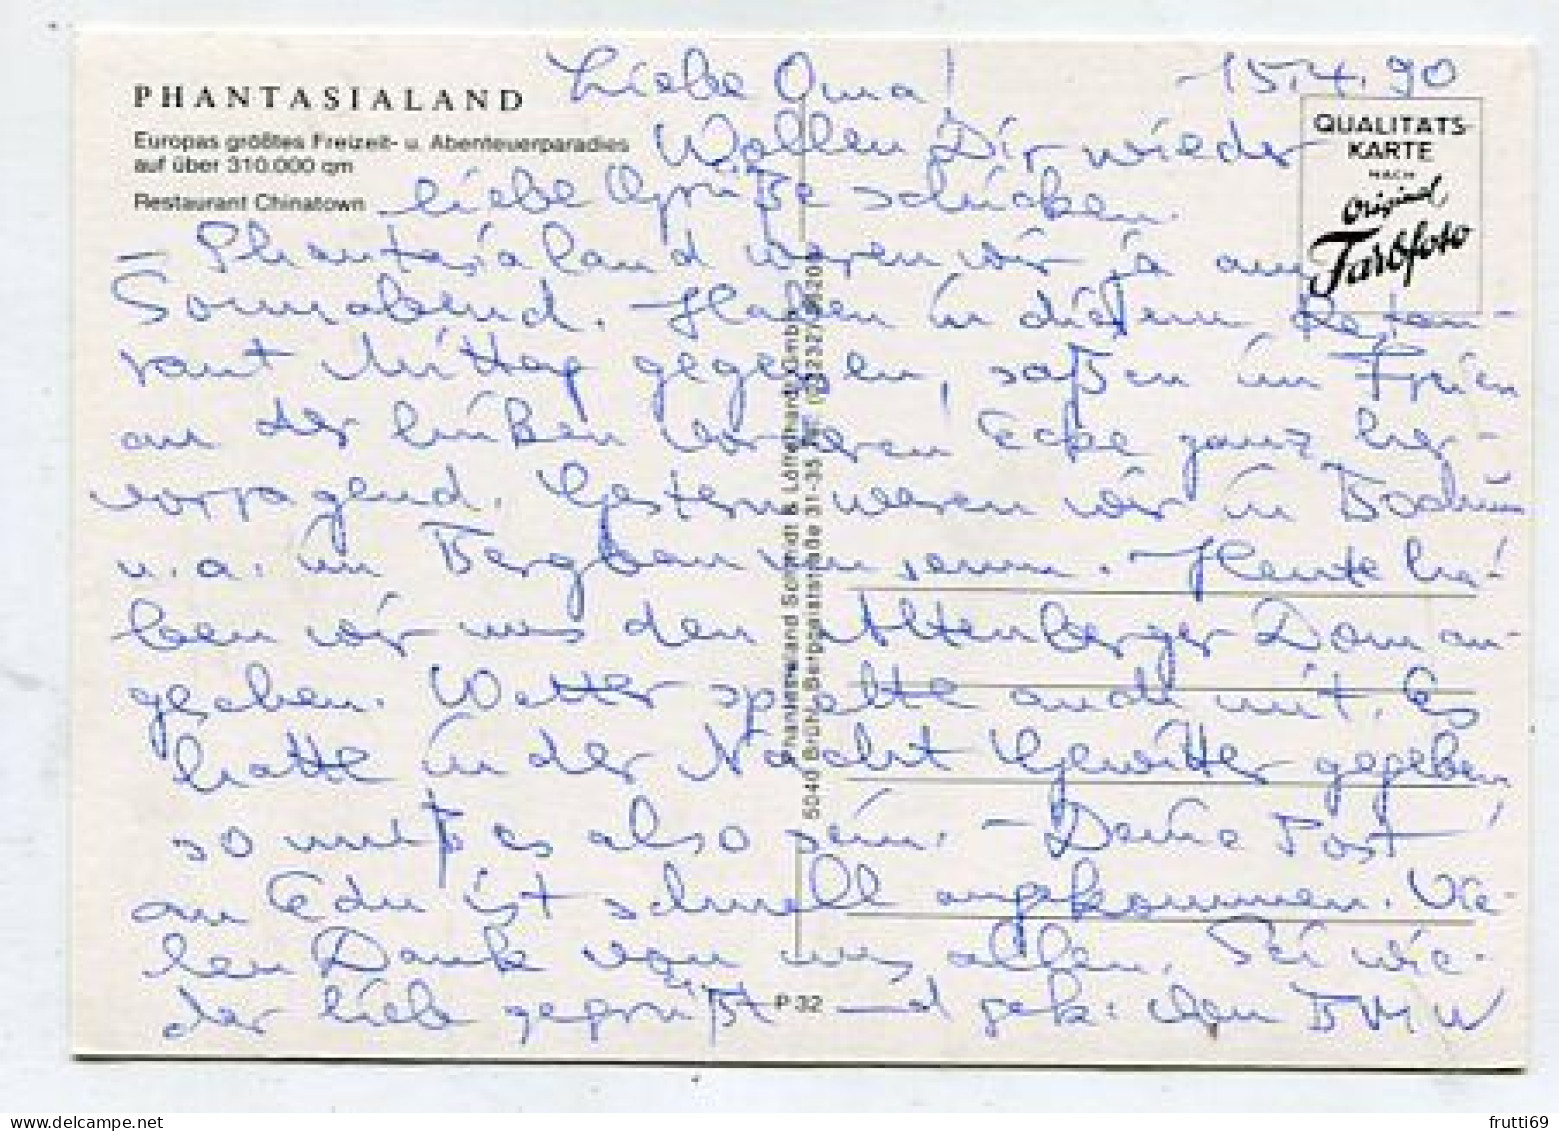 PHANTASIALAND
Europas größtes Freizeit- u. Abenteuerparadies
auf über 310.000 qm
Restaurant Chinatown
QUALITÄTS-
KARTE
NACH
Original
Farbfoto
15.4.90
Liebe Oma!
Wollen Dir wieder
liebe Grüße schicken.
- Phantasialand waren wir ja am
Sonnabend. Haben in diesem Restau-
rant Mittag gegessen, saßen im Freien
an der linken vorderen Ecke ganz her-
vorragend. Gestern waren wir in Bochum
u.a. im Bergbaumuseum. Heute ha-
ben wir uns den Altenberger Dom an-
gesehen. Wetter spielte auch mit. Es
hatte in der Nacht Gewitter gegeben
so muß es also sein. - Deine Post
an Edu ist schnell angekommen. Vie-
len Dank von uns allen. Sei wie-
der lieb gegrüßt und gek: den BMW
Phantasialand Schmidt & Löffelhardt GmbH
5040 Brühl, Berggeiststraße 31-35
P 32
frutti69
www.delcampe.net